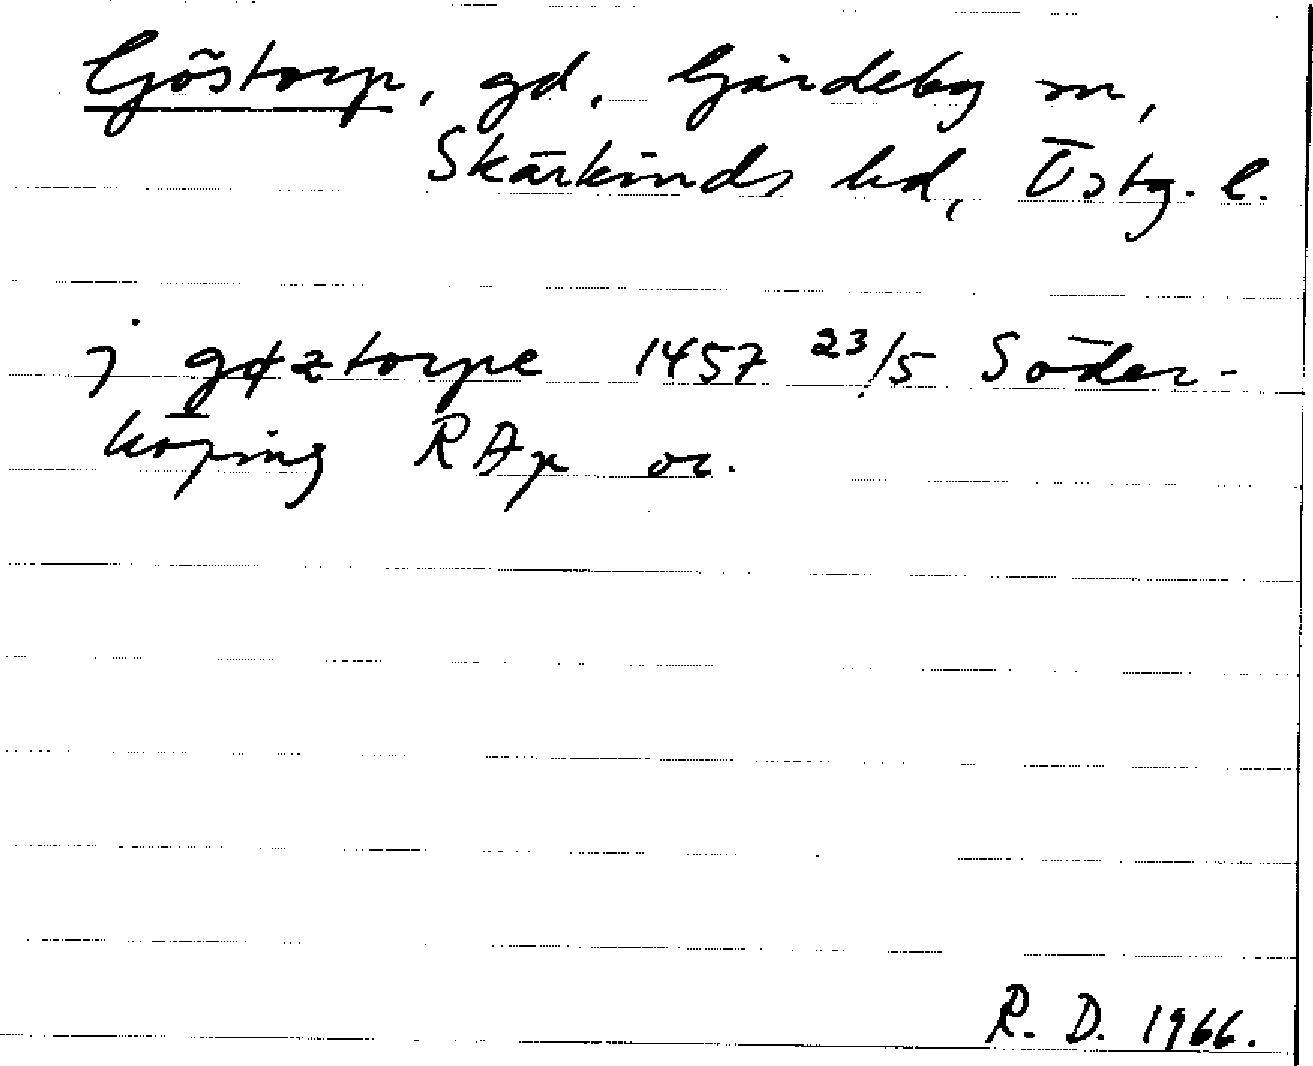 Göstorp, gd. Gärdeby sn,
Skärkinds hd, Östg. l.
j gøztorpe 1457 23/5 Söder-
köping RAp or.
R. D. 1966.